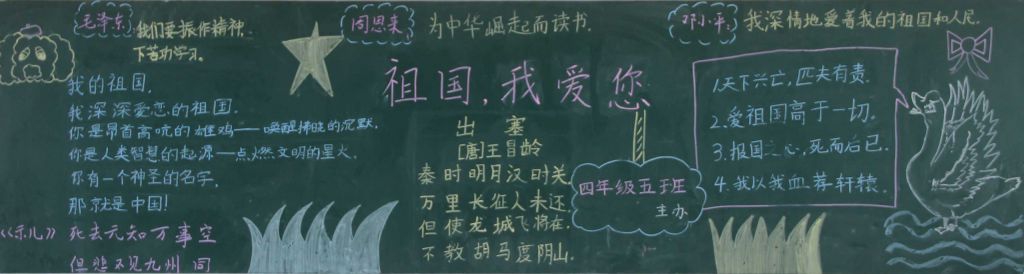 毛泽东
我们要振作精神,
下苦功学习。
周恩来
为中华崛起而读书.
邓小平.
我深情地爱着我的祖国和人民.
祖国,我爱您
我的祖国,
我深深爱恋的祖国.
你是昂首高吭的雄鸡——唤醒拂晓的沉默,
你是人类智慧的起源—点燃文明的星火,
你有一个神圣的名字,
那就是中国!
《示儿》 死去元知万事空
但悲不见九州同
出塞
[唐]王昌龄
秦时明月汉时关.
万里长征人未还.
但使龙城飞将在.
不教胡马度阴山.
四年级五班
主办
1.天下兴亡,匹夫有责.
2.爱祖国高于一切.
3.报国之心,死而后已.
4.我以我血荐轩辕.